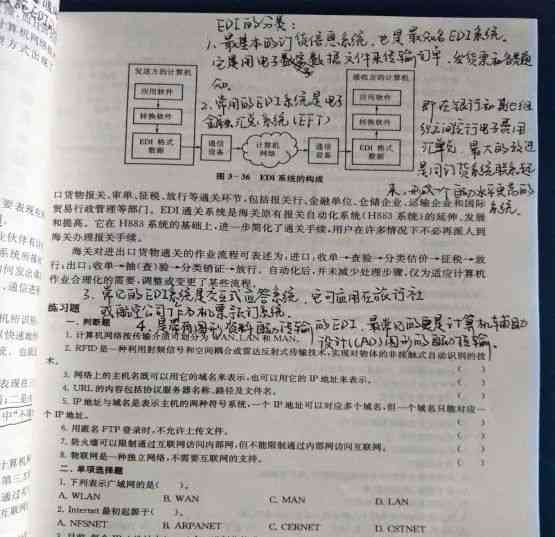 EDI的分类:
1. 最基本的订货信息系统,也是最知名EDI系统。
它是用电子数据文件来传输订单、发货票和各类通
知。
发送方的计算机
应用软件
转换软件
EDI 格式
数据
通信
设备
计算机
网络
通信
设备
接收方的计算机
应用软件
转换软件
EDI 格式
数据
2. 常用的EDI系统是电子
金融汇兑系统(EFT)
即在银行和其它组
织之间实行电子费用
汇兑
系统。
图 3-36 EDI 系统的构成
口货物报关、审单、征税、放行等通关环节,包括报关行、金融单位、仓储企业、运输企业和国际
贸易行政管理等部门。EDI 通关系统是海关原有报关自动化系统(H883 系统)的延伸、发展
和提高。它在 H883 系统的基础上,进一步简化了通关手续,用户在许多情况下不必再派人到
海关办理报关手续。
海关对进出口货物通关的作业流程可表述为:进口:收单→查验→分类估价→征税→放
行;出口:收单→抽(查)验→分类销证→放行。自动化后,并未减少处理步骤,仅为适应计算机
作业合理化的需要,调整或变更了某些流程。
3. 常见的EDI系统是交互式应答系统,它可应用在旅行社
或航空公司作为机票预订系统。
练习题
4. 是带有图形资料自动传输的EDI,最常见的是计算机辅助
设计(CAD)图形的自动传输。
一、判断题
1. 计算机网络按传输介质可划分为 WAN、LAN 和 MAN。
2. RFID 是一种利用射频信号和空间耦合或雷达反射式传输技术,实现对物体的非接触式自动识别的技
术。 ( )
3. 网络上的主机名既可以用它的域名来表示,也可以用它的 IP 地址来表示。 ( )
4. URL 的内容包括协议服务器名称、路径及文件名。 ( )
5. IP 地址与域名是表示主机的两种符号系统,一个 IP 地址可以对应多个域名,但一个域名只能对应一
个 IP 地址。 ( )
6. 用匿名 FTP 登录时,不允许上传文件。 ( )
7. 防火墙可以限制通过互联网访问内部网,但不能限制通过内部网访问互联网。 ( )
8. 物联网是一种独立网络,不需要互联网的支持。 ( )
二、单项选择题
1. 下列表示广域网的是( )。
A. WLAN B. WAN C. MAN D. LAN
2. Internet 最初起源于( )。
A. NFSNET B. ARPANET C. CERNET D. CSTNET